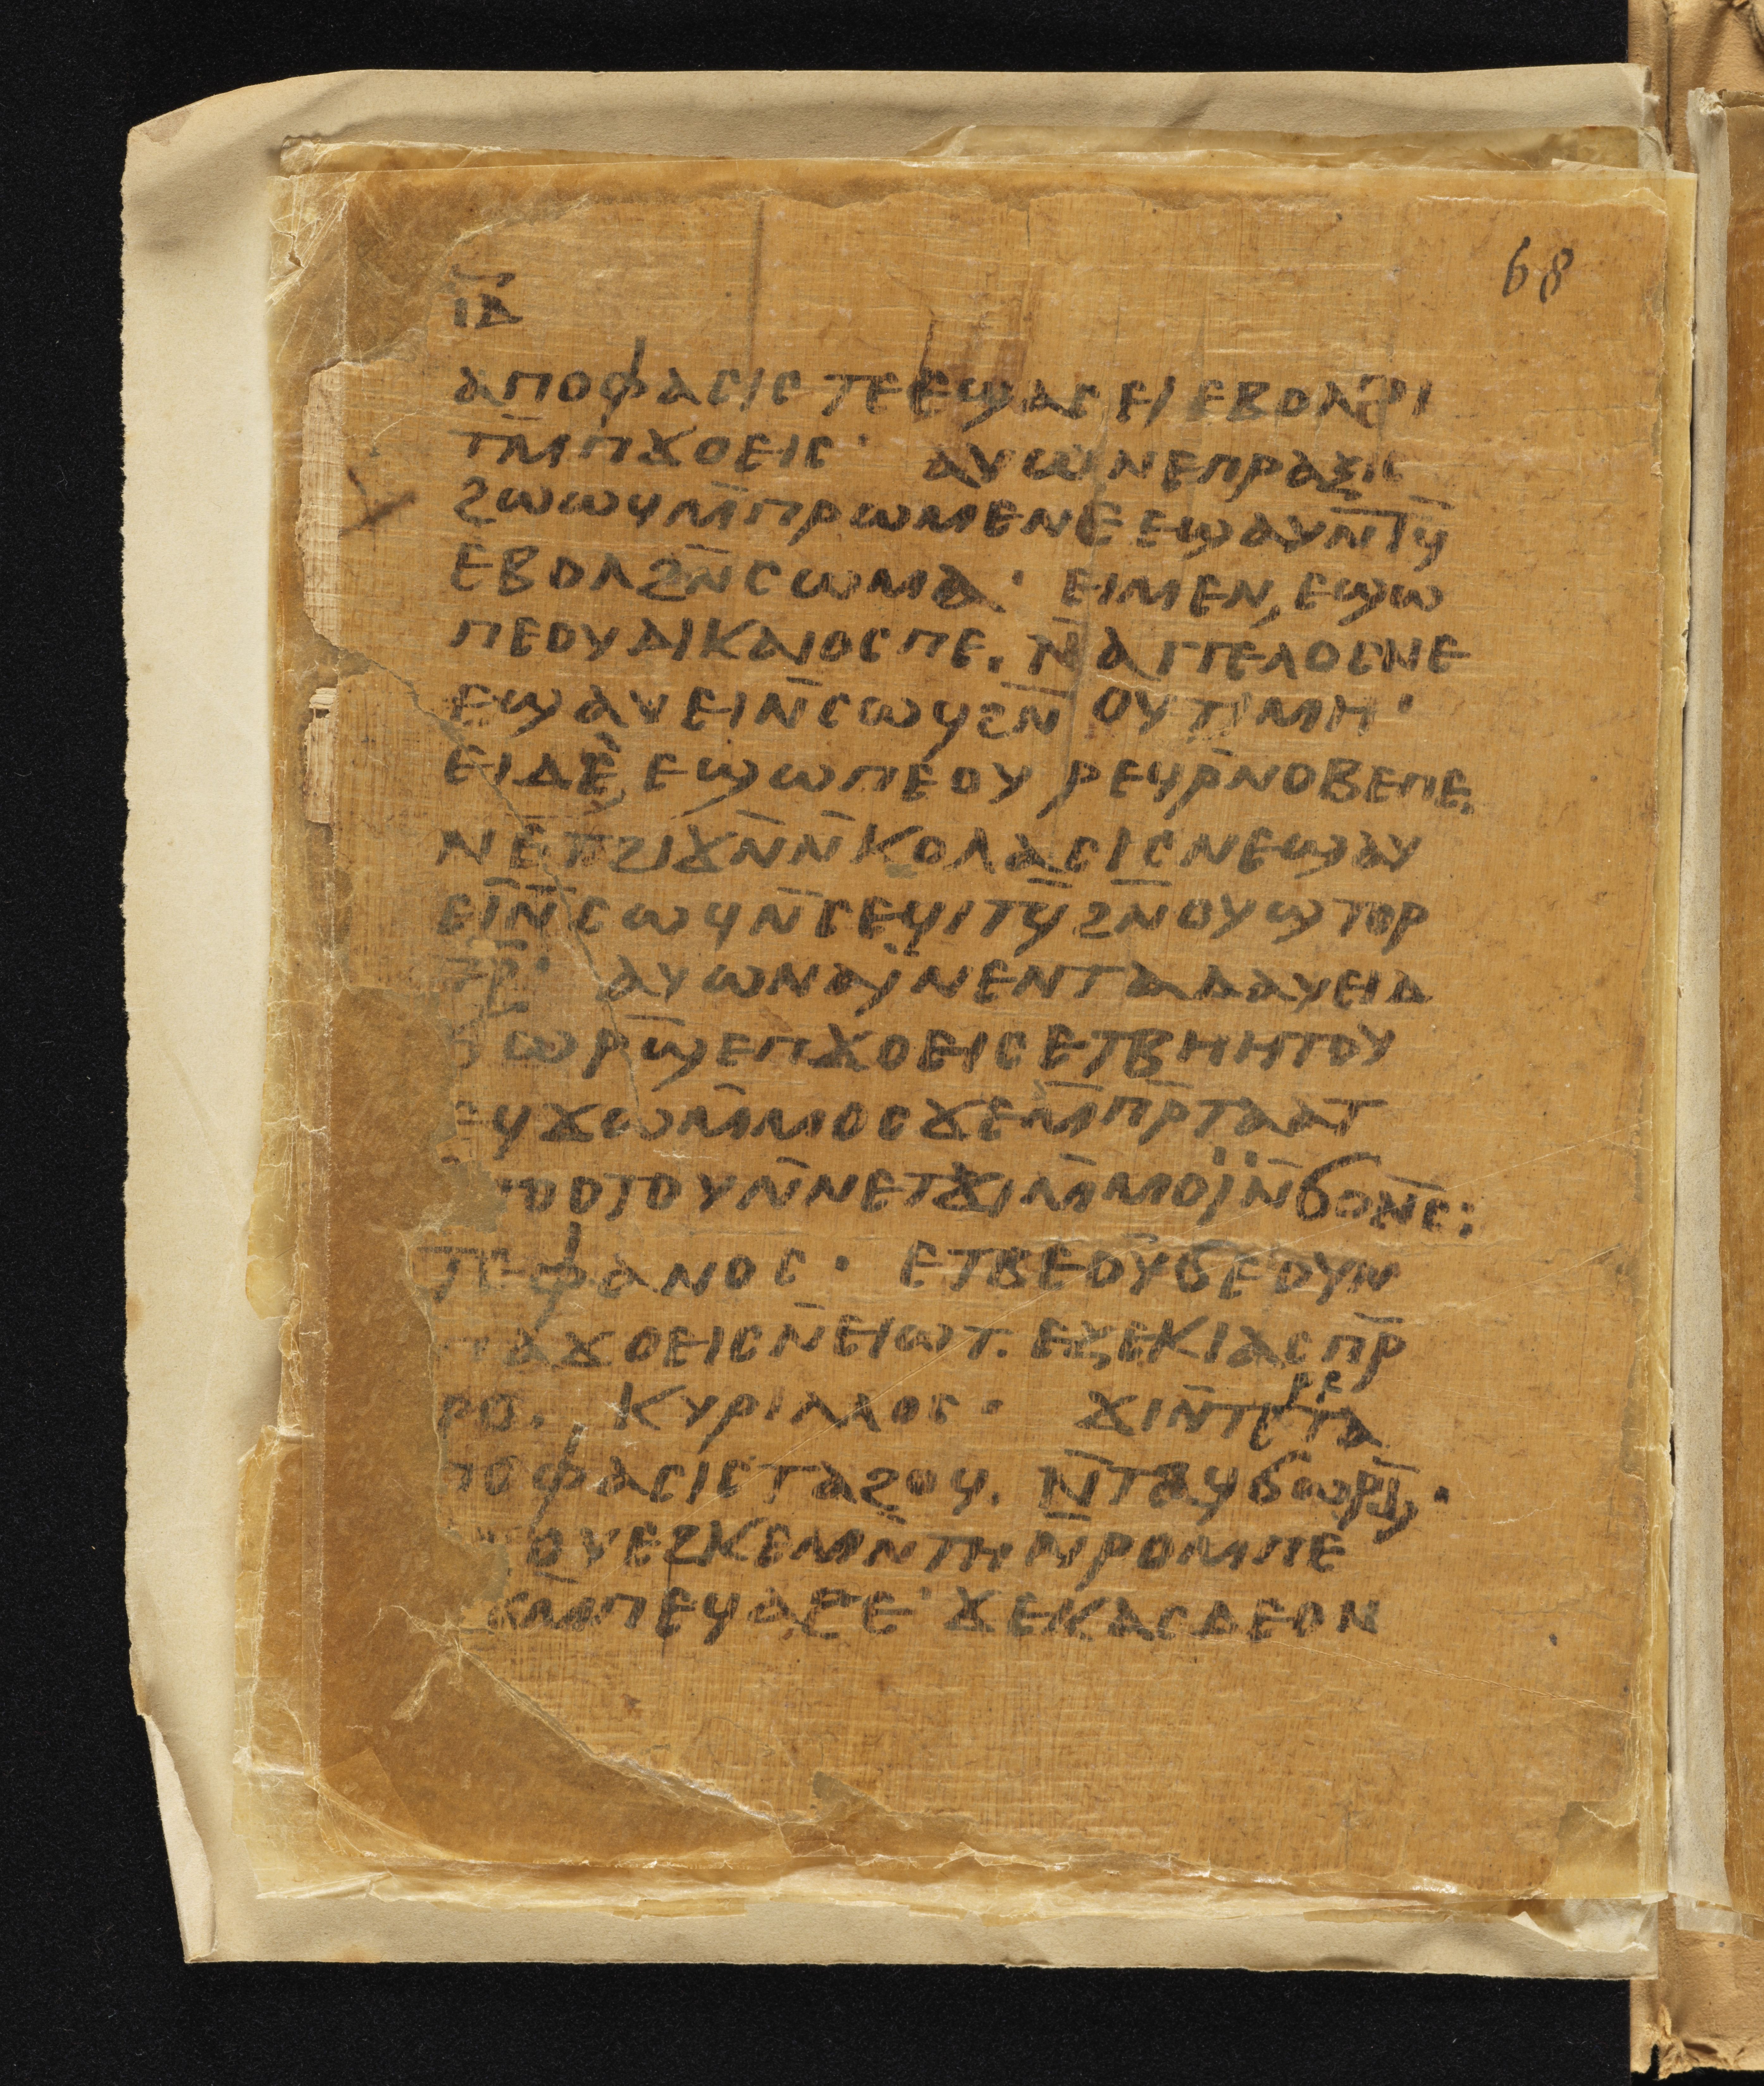 68
ⲓ̅ⲇ̅
ⲁⲡⲟⲫⲁⲥⲓⲥ ⲧⲉ ⲉϣⲁⲥⲉⲓ ⲉⲃⲟⲗϩⲓ
ⲧⲙ̅ⲡϫⲟⲉⲓⲥ· ⲁⲩⲱ ⲛⲉⲡⲣⲁⲝⲓⲥ
ϩⲱⲱϥ ⲙ̅ⲡⲣⲱⲙⲉ ⲛⲉ ⲉϣⲁⲩⲛ̅ⲧϥ̅
ⲉⲃⲟⲗϩⲛ̅ⲥⲱⲙⲁ· ⲉⲓⲙⲉⲛ ⲉϣⲱ
ⲡⲉ ⲟⲩⲇⲓⲕⲁⲓⲟⲥ ⲡⲉ. ⲛ̅ⲁⲅⲅⲉⲗⲟⲥ ⲛⲉ
ⲉϣⲁⲩⲉⲓ ⲛ̅ⲥⲱϥ ϩⲛ̅ ⲟⲩⲧⲓⲙⲏ·
ⲉⲓⲇⲉ ⲉϣⲱⲡⲉ ⲟⲩ ⲣⲉϥⲣ̅ⲛⲟⲃⲉ ⲡⲉ.
ⲛⲉⲧϩⲓϫⲛ̅ ⲛ̅ⲕⲟⲗⲁⲥⲓⲥ ⲛⲉϣⲁⲩ
ⲉⲓ ⲛ̅ⲥⲱϥ ⲛ̅ⲥⲉϥⲓⲧϥ̅ ϩⲛ̅ⲟⲩϣⲧⲟⲣ
ⲧⲣ̅· ⲁⲩⲱ ⲛⲁⲓ̈ ⲛⲉⲛⲧⲁⲇⲁⲩⲉⲓⲇ
ϭⲱⲣϣ̅ ⲉⲡϫⲟⲉⲓⲥ ⲉⲧⲃⲏⲏⲧⲟⲩ
ⲉϥϫⲱ ⲙ̅ⲙⲟⲥ ϫⲉ ⲙ̅ⲡⲣ̅ⲧⲁⲁⲧ
ⲟⲟⲧⲟⲩ ⲛ̅ⲛⲉⲧϫⲓ ⲙ̅ⲙⲟⲓ̈ ⲛ̅ϭⲟⲛⲥ̅:
ⲧⲉⲫⲁⲛⲟⲥ· ⲉⲧⲃⲉⲟⲩ ϭⲉ ⲟⲩⲛ
ⲡⲁϫⲟⲉⲓⲥ ⲛ̅ⲉⲓⲱⲧ. ⲉⲍⲉⲕⲓⲁⲥ ⲡⲣ̅
ⲣⲟ. ⲕⲩⲣⲓⲗⲗⲟⲥ· ϫⲓⲛⲧⲉⲣⲉⲧⲁ
ⲡⲟⲫⲁⲥⲓⲥ ⲧⲁϩⲟϥ. ⲛ̅ⲧⲁϥϭⲱⲣϣ̅·
ⲟⲩⲉϩ ⲕⲉⲙⲛ̅ⲧⲏ ⲛ̅ⲣⲟⲙⲡⲉ
ⲙ̅ⲡⲉϥⲁϩⲉ· ϫⲉⲕⲁⲥ ⲇⲉ ⲟⲛ